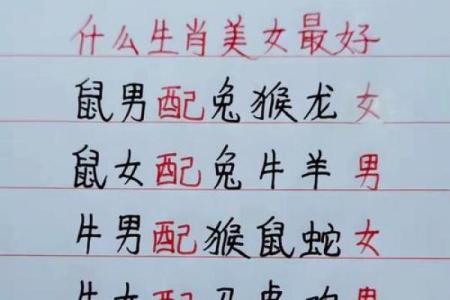 什么生肖美女最好
鼠男配兔猴龙女
鼠女配兔牛羊男
牛男配猴鼠蛇女
牛女配